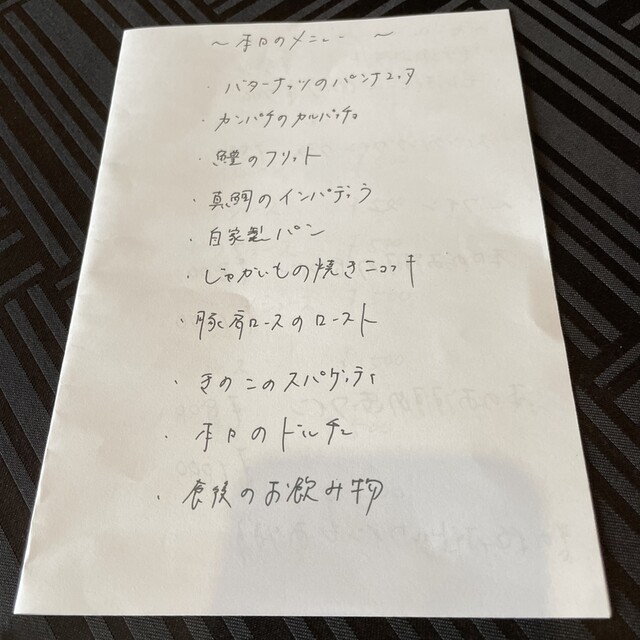 ～本日のメニュー～
・バターナッツのパンナコッタ
・カンパチのカルパッチョ
・鱧のフリット
・真鯛のインパデッラ
・自家製パン
・じゃがいもの焼きニョッキ
・豚肩ロースのロースト
・きのこのスパゲッティ
・本日のドルチェ
・食後のお飲み物